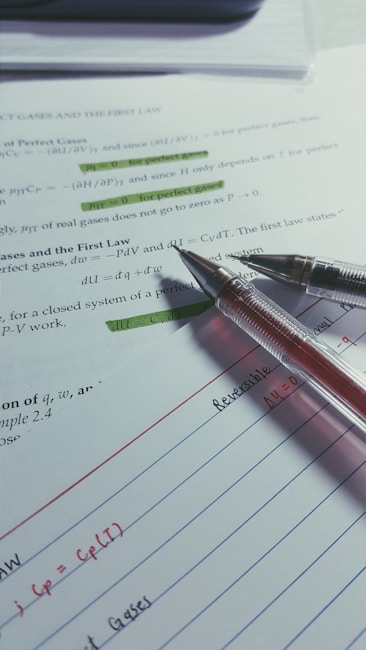 CT GASES AND THE FIRST LAW
of Perfect Gases
μJCV = −(∂U/∂V)T and since (∂U/∂V)T = 0 for perfect gases, then
μJ = 0 for perfect gases
e μJTCP = −(∂H/∂P)T and since H only depends on T for perfect
n
μJT = 0 for perfect gases
gly, μJT of real gases does not go to zero as P → 0.
ases and the First Law
erfect gases, đw = −PdV and dU = CVdT. The first law states
dU = đq + đw
e, for a closed system of a perfect
P-V work,
dU = CVdT
on of q, w, an
mple 2.4
ose
Reversible
Δu = 0
-q
AW
; Cp = Cp(T)
ct Gases